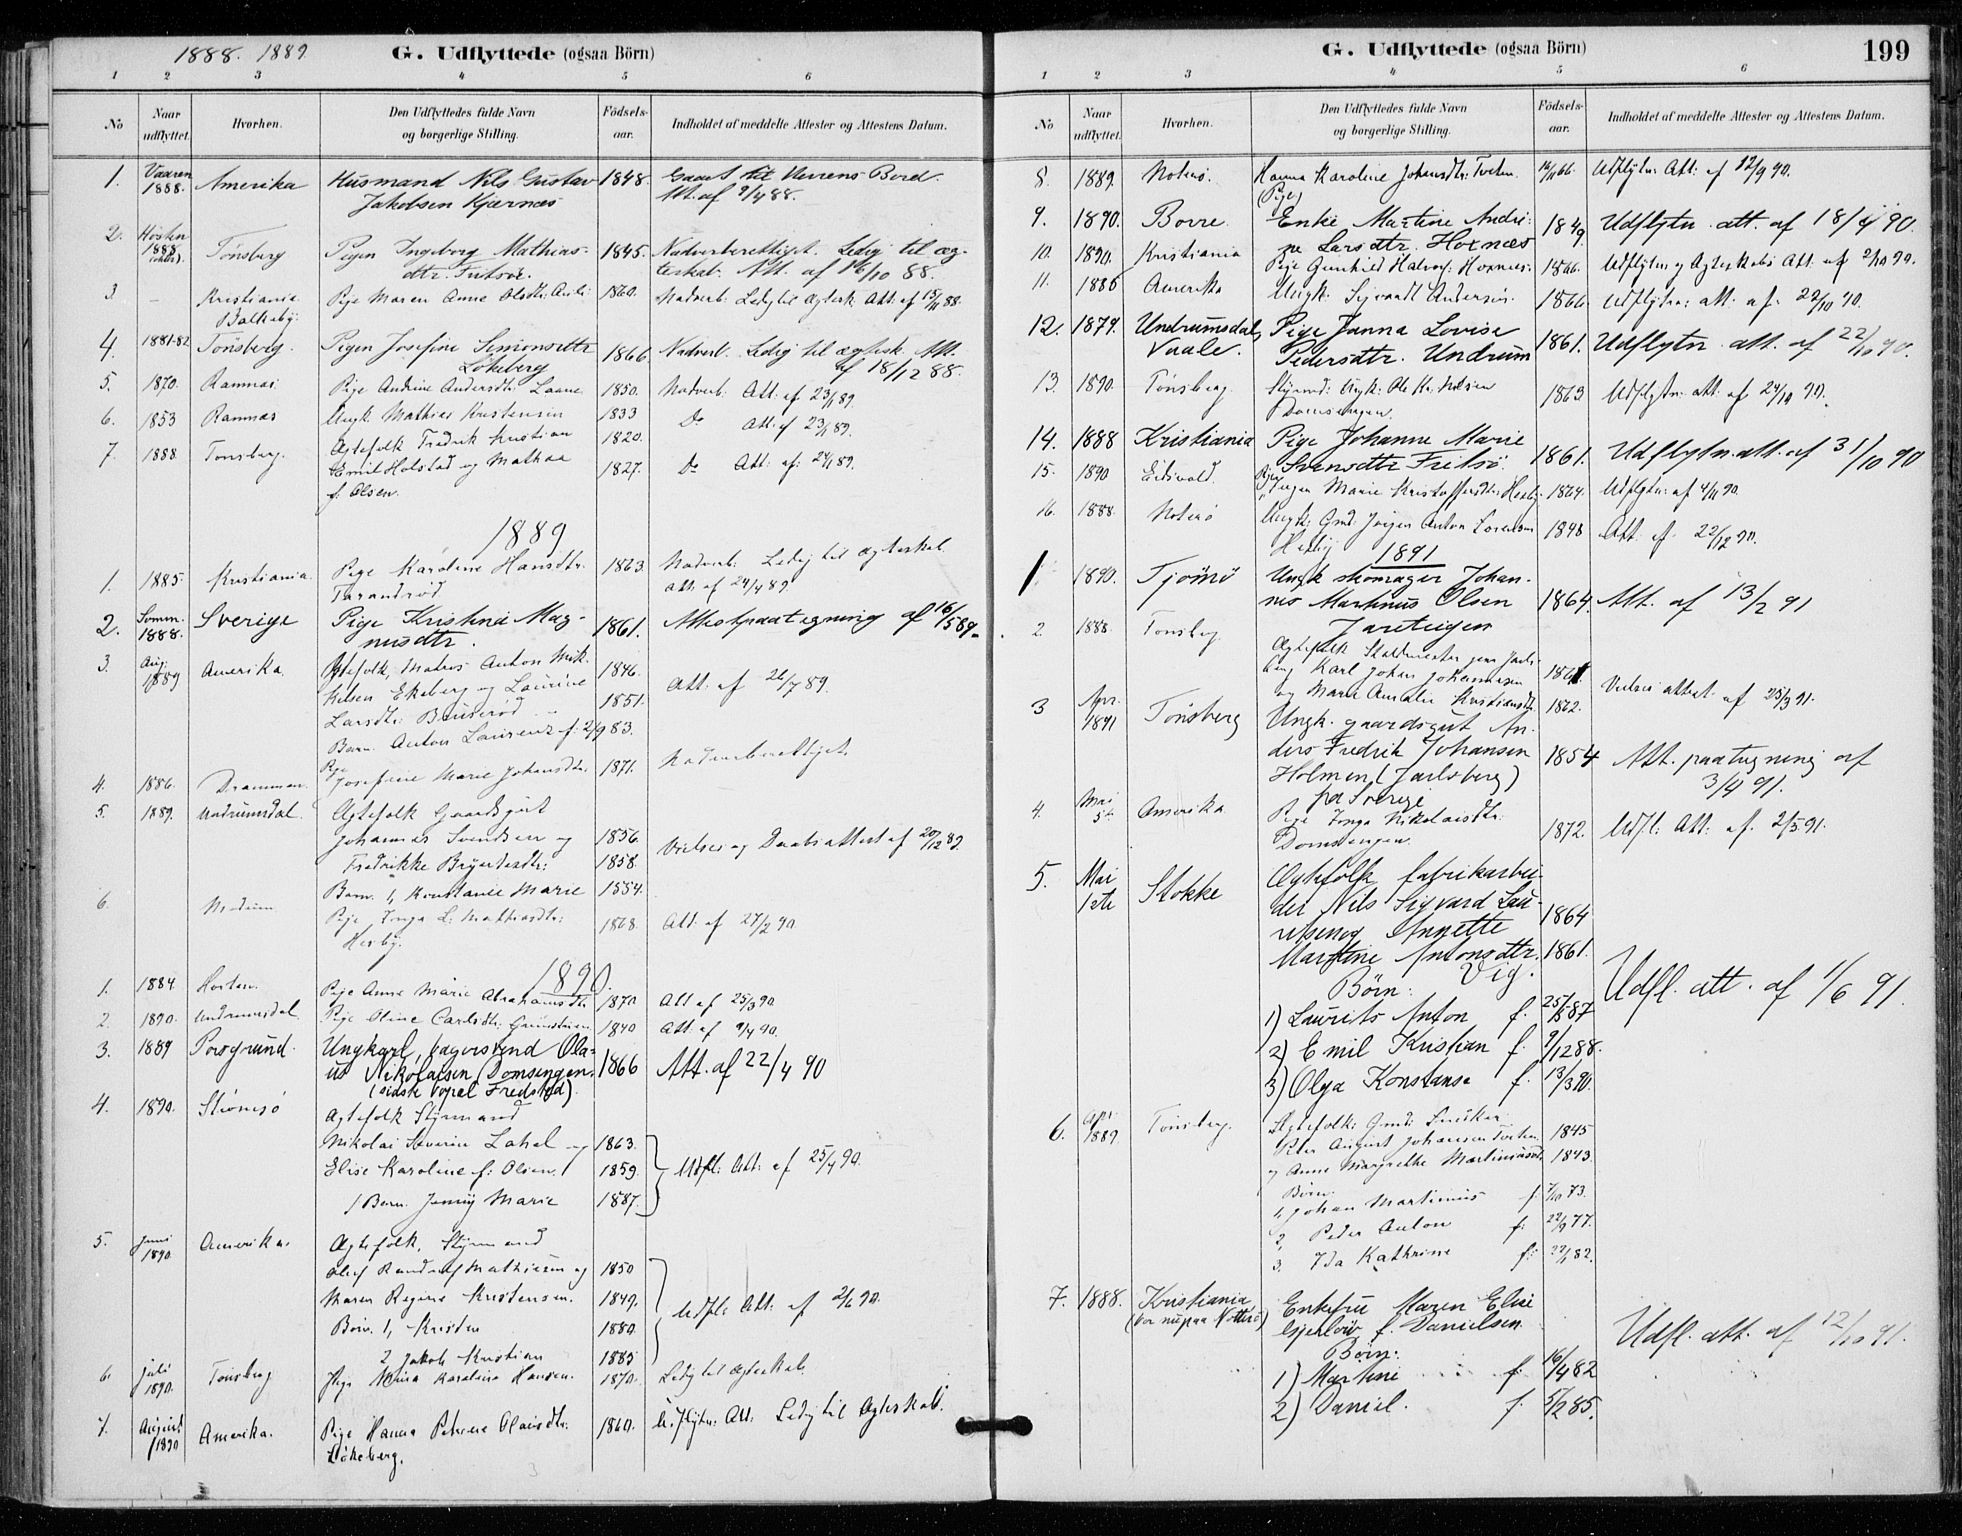 1888. 1889
G. Udflyttede (ogsaa Börn)
1 2 3 4 5 6
No
Naar udflyttet.
Hvorhen.
Den Udflyttedes fulde Navn og borgerlige Stilling.
Födsels-aar.
Indholdet af meddelte Attester og Attestens Datum.
1. Vaaren 1888. Amerika Husmand Nils Gustav 1848. Gaaet til Herrens Bord.
Jakobsen Kjærnæs Att. af 9/4 88.
2. Hösten 1888 Tønsberg Pigen Ingeborg Mathias- 1845. Nadverberettiget. Ledig til æg-
dtr. Fritsøe. teskab. Att. af 16/10 88.
3. – Kristiania Pige Maren Anne Olsdtr. 1860. Nadverb. Ledig til Ægtesk. Att. af 15/11 88.
Balkeby.
4. 1881-82 Tønsberg. Pigen Josefine Simonsdtr 1866 Nadverb. Ledig til ægtesk. Att.
Løkeberg af 18/12 88.
5. 1870. Ramnæs Pige Andrine Andersdtr. Laane 1850. Nadverb. Att. af 23/1 89.
6. 1853 Ramnæs Ungk. Mathias Kristensen 1833 Do Att. af 23/1 89.
7. 1888. Tønsberg. Ægtefolk Fredrik Kristian 1820.
Emil Holstad og Mathea 1827. Do Att. af 24/1 89.
f. Olsen.
1889
1. 1885. Kristiania. Pige Karoline Hansdtr. 1863. Nadverb. Ledig til Ægteskab
Tarandrød Att. af 24/4 89.
2. Somm. 1888. Sverige Pige Kristine Mag- 1861. Attestpaategning af 16/5 89.
nusdtr.
3. Aug. 1889 Amerika. Ægtefolk, Matros Anton Mik- 1846.
kelsen Ekeberg og Laurine 1851. Att. af 22/7 89.
Larsdtr. Bauserød
Barn: Anton Laurenz f. 2/9 83.
4. 1886. Drammen. Pige Josefine Marie Johansdtr. 1871. Nadverberettiget.
5. 1889. Undrumsdal. Ægtefolk Gaardsgut
Johannes Svendsen og 1856. Vielses og Daabsattest af 20/12 89.
Fredrikke Birgersdtr. 1858.
Barn. 1, Konstanse Marie 1884.
6. Modum Pige Inga L. Mathiasdtr. 1868. Att. af 27/2 90.
Hesby.
1890.
1. 1884. Horten. Pige Anne Marie Abrahamsdtr. 1870 Att af 25/3 90.
2. 1890. Undrumsdal. Pige Oline Carlsdtr. 1840 Att. af 9/4 90.
3. 1889 Porsgrund. Ungkarl, bagersvend Ola-
us Nikolaisen Domsengen. 1866 Att. af 22/4 90
(sidste bopæl Fredstad).
4. 1890. Ægtefolk Styrmand
Nikolai Severin Lahel og 1863.
Elise Karoline f. Olsen. 1859. Udfl. Att. af 25/4 90.
1 Barn. Jenny Marie 1887.
5. Juni 1890. Amerika. Ægtefolk, Styrmand
Mathiesen og 1850
Maren Regine Kristensen. 1849. Udfl. Att. af 2/6 90.
Børn. 1, Kristen 1880
2 Jakob Kristian 1885
6. Juli 1890. Tønsberg Pige Karoline Hansen. 1870. Ledig til ægteskab.
7. August 1890 Amerika. Pige Hanna Petrine Olausdtr. 1860. Udflytn. Att. Ledig til Ægteskab.
Løkeberg.
G. Udflyttede (ogsaa Börn)
199
1 2 3 4 5 6
No
Naar udflyttet.
Hvorhen.
Den Udflyttedes fulde Navn og borgerlige Stilling.
Födsels-aar.
Indholdet af meddelte Attester og Attestens Datum.
8. 1889. Noterø. Hanna Karoline Johansdtr. Tveten. Udflytn. Att. af 12/9 90.
(Pige)
9. 1890. Borre. Enke Martine Andri- 1849 Udflytn. att. af 18/9 90.
ne Larsdtr. Hornæs
10. 1890. Kristiania Pige Gunhild Halvors. Hornæs. 1866. Udflytn. og Ægteskabs Att. af 2/10 90.
11. 1886 Amerika Ungk. Sigvardt Andersen. 1866. Udflytn. att. af 22/10 90.
12. 1879. Undrumsdal, Pige Janna Lovise 1861. Udflytn. att. af 22/10 90.
Vaale. Pedersdtr. Undrum
13. 1890. Tønsberg Styrmd. Ungk. Ole Kr. Nilsen 1863 Udflytn. att. af 24/10 90.
Domsengen.
14. 1888 Kristiania Pige Johanne Marie 1861. Udflytn. att. af 31/10 90
Svensdtr Fritsø.
15. 1890 Eidsvold. Pige Inger Marie Kristoffersdtr. Hesby. 1864. Udflytn. af 4/11 90.
16. 1888. Noterø Ungk. Gmd. Jørgen Anton Lorensen 1848 Att. af 22/12 90.
Hesby
1891
1 1890. Tjømø Ungk skomager Johan-
nes Martinus Olsen 1864. Att. af 13/2 91
Jareteigen
2 1888. Tønsberg Ægtefolk Staldmester paa Jarls-
berg Karl Johan Johannesen 1861 Vielses attest af 25/3 91.
og Maria Amalie Kristiansdtr. 1862.
3 Apr. 1891 Tønsberg Ungk. gaardsgut An-
ders Fredrik Johansen 1854 Att. paategning af
Holmen (Jarlsberg) 3/4 91.
fra Sverige
4. Mai Amerika Pige Inga Nikolaisdtr. 1872. Udfl. Att. af 2/5 91.
Domsengen.
5. Mai Stokke Ægtefolk fabrikarbei-
der Nils Sigvard Lau- 1864
ritsen og Annette
Martine Antonsdtr. 1861.
Vig. Udfl. att. af 1/6 91.
Børn:
1) Laurits Anton f. 25/5 87
2) Emil Kristian f. 9/12 88.
3) Olga Konstanse f. 13/3 90.
6. 1889. Tønsberg. Ægtefolk: Gmd. Snedker
Peter August Johansen Tveten, 1845
og Anne Margrethe Martinsdtr. 1843.
Børn.
1, Johan Martinius f. 7/10 73.
2, Peder Anton f. 22/9 77.
3. Ida Kathrine f. 22/1 82.
7. 1888. Kristiania Enkefru Maren Elise
(bor nu paa Nøtterø) Gjerløw f. Danielsen. Udfl. att. af 12/10 91.
Børn:
1) Martine f. 16/4 82
2) Daniel. f. 5/2 85.